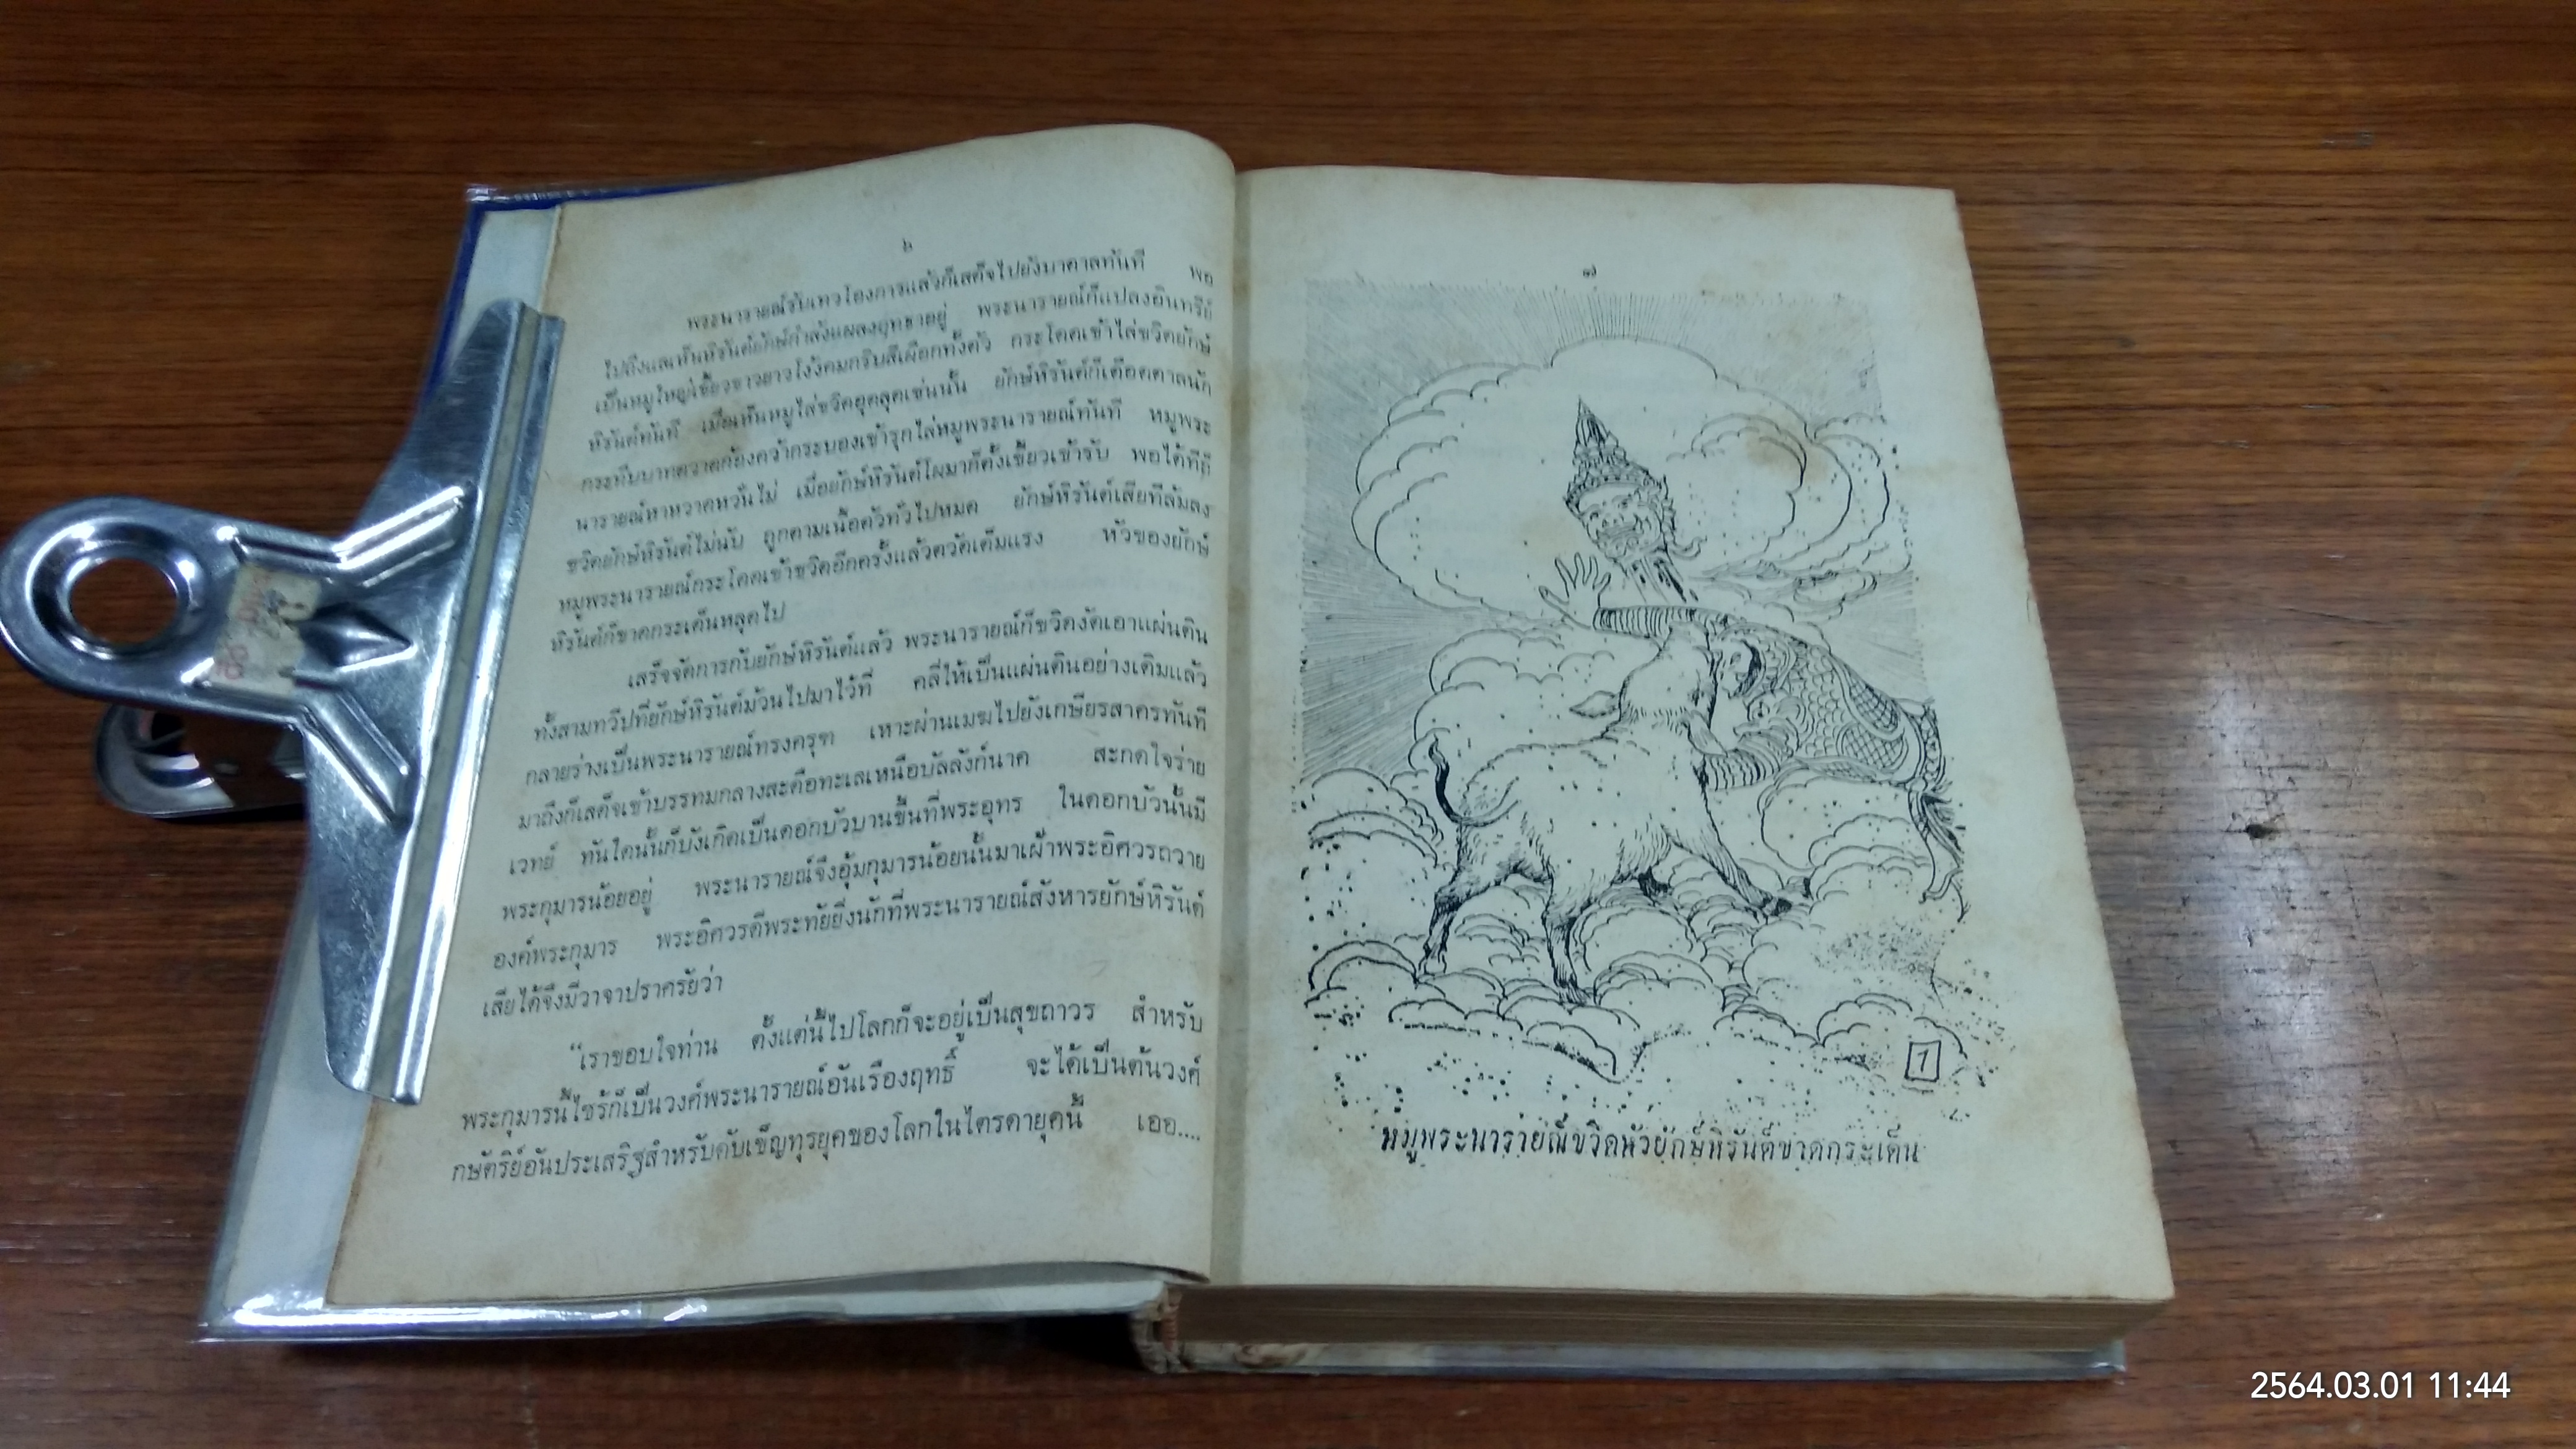 ๖
พระนารายณ์รับเทวโองการแล้วก็เสด็จไปยังบาดาลทันที พอ
ไปถึงแลเห็นหิรันต์ยักษ์กำลังแผลงฤทธาอยู่ พระนารายณ์ก็แปลงอินทรีย์
เป็นหมูใหญ่เขี้ยวขาวยาวโง้งคมกริบสีเผือกทั้งตัว กระโดดเข้าไล่ขวิดยักษ์
หิรันต์ทันที เมื่อเห็นหมูไล่ขวิดอุดลุดเช่นนั้น ยักษ์หิรันต์ก็เดือดดาลนัก
กระทืบบาทตวาดก้องคว้ากระบองเข้ารุกไล่หมูพระนารายณ์ทันที หมูพระ
นารายณ์หาหวาดหวั่นไม่ เมื่อยักษ์หิรันต์โผมาก็ตั้งเขี้ยวเข้ารับ พอได้ทีก็
ขวิดยักษ์หิรันต์ไม่นับ ถูกตามเนื้อตัวทั่วไปหมด ยักษ์หิรันต์เสียทีล้มลง
หมูพระนารายณ์กระโดดเข้าขวิดอีกครั้งแล้วตวัดเต็มแรง หัวของยักษ์
หิรันต์ก็ขาดกระเด็นหลุดไป
เสร็จจัดการกับยักษ์หิรันต์แล้ว พระนารายณ์ก็ขวิดงัดเอาแผ่นดิน
ทั้งสามทวีปที่ยักษ์หิรันต์ม้วนไปมาไว้ที่ คลี่ให้เป็นแผ่นดินอย่างเดิมแล้ว
กลายร่างเป็นพระนารายณ์ทรงครุฑ เหาะผ่านเมฆไปยังเกษียรสาครทันที
มาถึงก็เสด็จเข้าบรรทมกลางสะดือทะเลเหนือบัลลังก์นาค สะกดใจร่าย
เวทย์ ทันใดนั้นก็บังเกิดเป็นดอกบัวบานขึ้นที่พระอุทร ในดอกบัวนั้นมี
พระกุมารน้อยอยู่ พระนารายณ์จึงอุ้มกุมารน้อยนั้นมาเฝ้าพระอิศวรถวาย
องค์พระกุมาร พระอิศวรดีพระทัยยิ่งนักที่พระนารายณ์สังหารยักษ์หิรันต์
เสียได้จึงมีวาจาปราศรัยว่า
“เราขอบใจท่าน ตั้งแต่นี้ไปโลกก็จะอยู่เป็นสุขถาวร สำหรับ
พระกุมารนี้ไซร้ก็เป็นวงศ์พระนารายณ์อันเรืองฤทธิ์ จะได้เป็นต้นวงศ์
กษัตริย์อันประเสริฐสำหรับดับเข็ญทุรยุคของโลกในไตรดายุคนี้ เออ....
๗
1
หมูพระนารายณ์ขวิดหัวยักษ์หิรันต์ขาดกระเด็น
2564.03.01 11:44